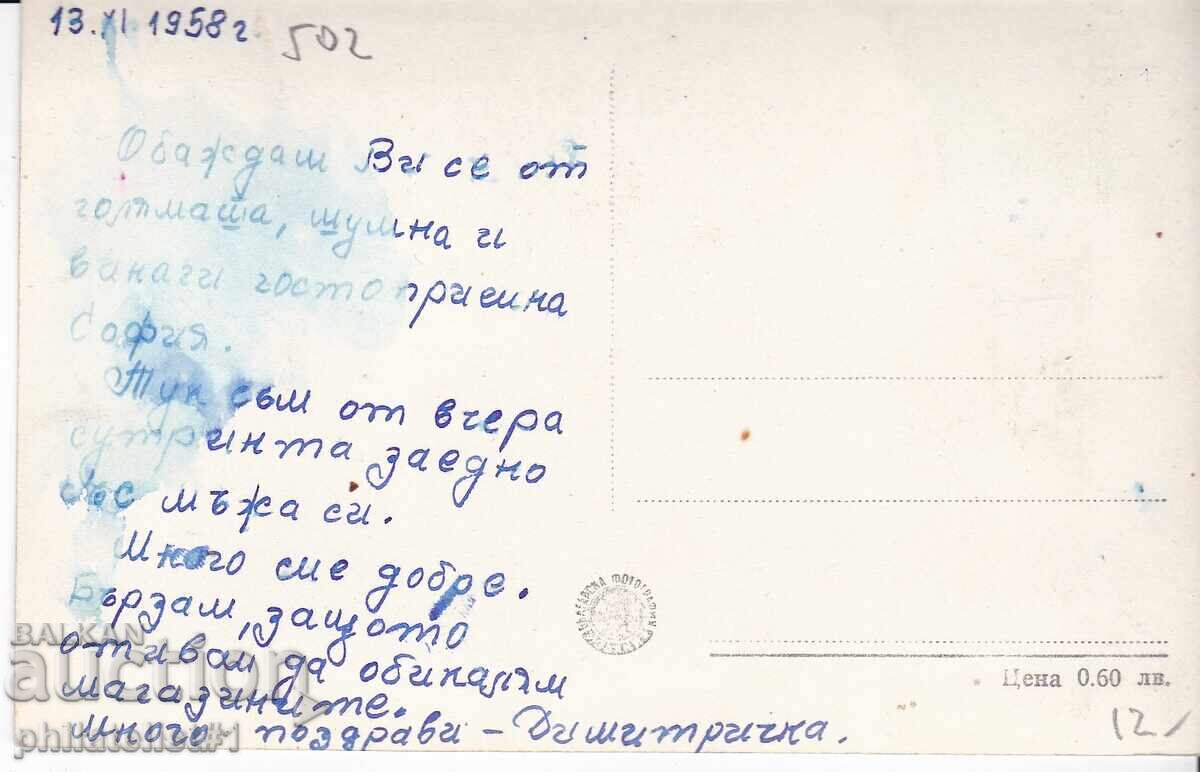 13.XI.1958 г.
502
Обаждам Ви се от
голямата, шумна и
винаги гостоприемна
София.
Тук съм от вчера
сутринта заедно
със мъжа си.
Много сме добре.
Бързам, защото
отивам да обикалям
магазините.
Много поздрави – Димитричка.
БЪЛГАРСКА ФОТОГРАФИЯ
Цена 0.60 лв.
12
BALKAN
auction
philatelic#1